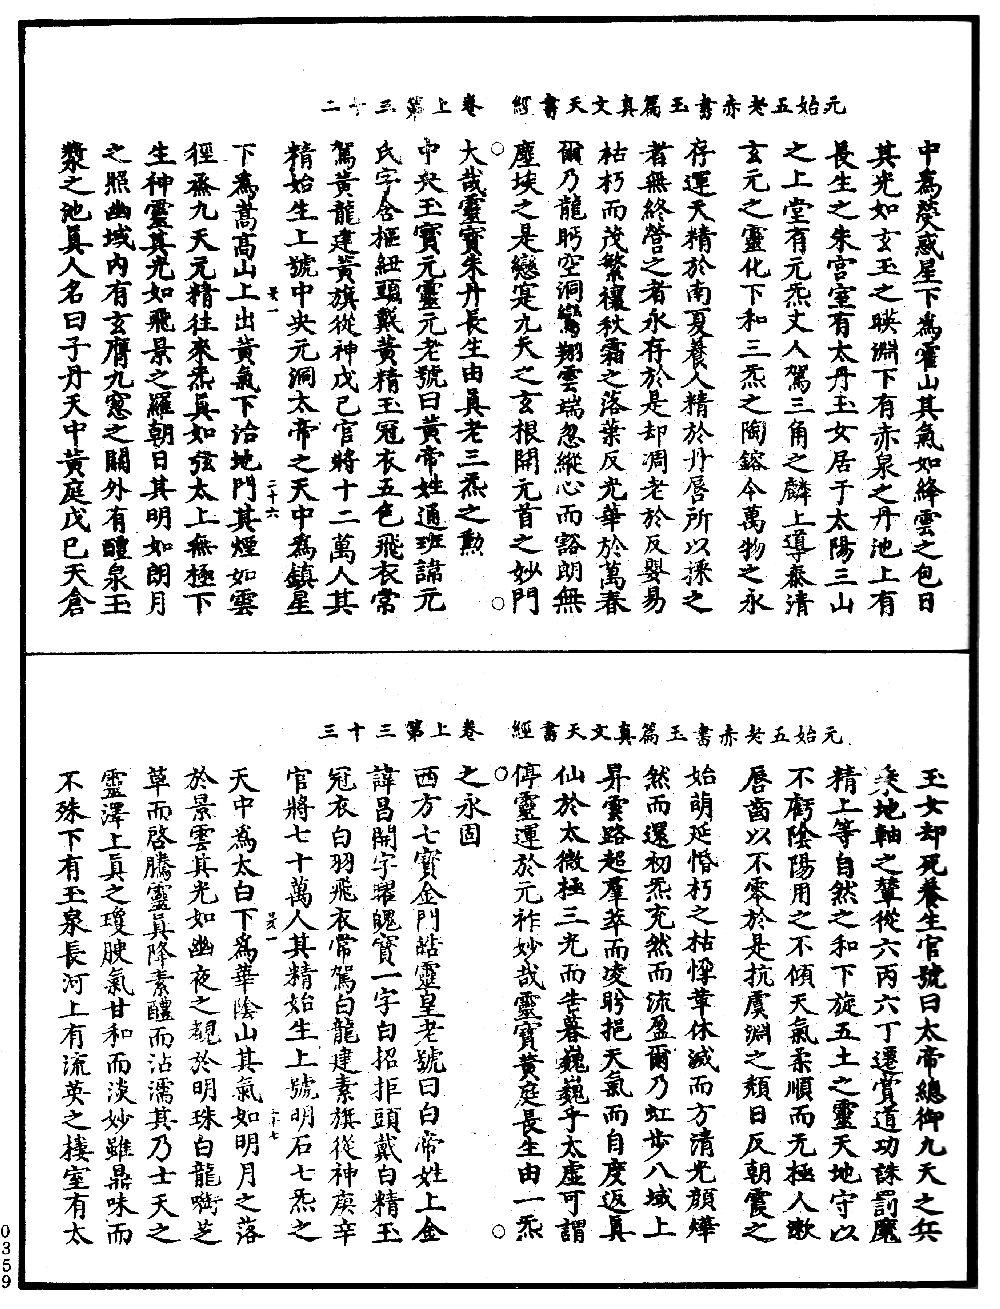 元始五老赤書玉篇真文天書經　卷上第三十二
中為熒惑星下為霍山其氣如絳雲之包日
其光如玄玉之暎淵下有赤泉之丹池上有
長生之朱宮室有太丹玉女居于太陽三山
之上堂有元炁丈人駕三角之麟上導泰清
玄元之靈化下和三炁之陶鎔令萬物之永
存運天精於南夏養人精於丹脣所以採之
者無終營之者永存於是却凋老於反嬰易
枯朽而茂繁禳秋霜之落葉反光華於萬春
爾乃龍眄空洞鸞翔雲端忽縱心而豁朗無
塵埃之是戀寔九天之玄根開元首之妙門
大哉靈寶朱丹長生由真老三炁之勲
中央玉寶元靈元老號曰黃帝姓通班諱元
氏字含樞紐頭戴黃精玉冠衣五色飛衣常
駕黃龍建黃旗從神戊己官將十二萬人其
精始生上號中央元洞太帝之天中為鎮星
二十六
下為嵩高山上出黃氣下洽地門其煙如雲
徑烝九天元精往來炁真如弦太上無極下
生神靈其光如飛景之羅朝日其明如朗月
之照幽域內有玄膺九窻之關外有醴泉玉
漿之池真人名曰子丹天中黃庭戊己天倉
元始五老赤書玉篇真文天書經　卷上第三十三
玉女却死養生官號曰太帝總御九天之兵
乘地軸之輦從六丙六丁遷賞道功誅罰魔
精上等自然之和下旋五土之靈天地守以
不虧陰陽用之不傾天氣柔順而无極人漱
脣齒以不零於是抗虞淵之頹日反朝霞之
始萌延惛朽之枯悴華休滅而方清光顏煒
然而還初炁充然而流盈爾乃虹步八域上
昇雲路超羣萃而凌眇挹天氣而自度返真
仙於太微極三光而告暮巍巍乎太虛可謂
停靈運於元祚妙哉靈寶黃庭長生由一炁
之永固
西方七寶金門皓靈皇老號曰白帝姓上金
諱昌開字曜魄寶一字白招拒頭戴白精玉
冠衣白羽飛衣常駕白龍建素旗從神庚辛
官將七十萬人其精始生上號明石七炁之
二十七
天中為太白下為華陰山其氣如明月之落
於景雲其光如幽夜之覩於明珠白龍嘯芝
草而啓騰靈真降素醴而沾濡其乃士天之
靈澤上真之瓊腴氣甘和而淡妙雖鼎味而
不殊下有玉泉長河上有流英之樓室有太
0359